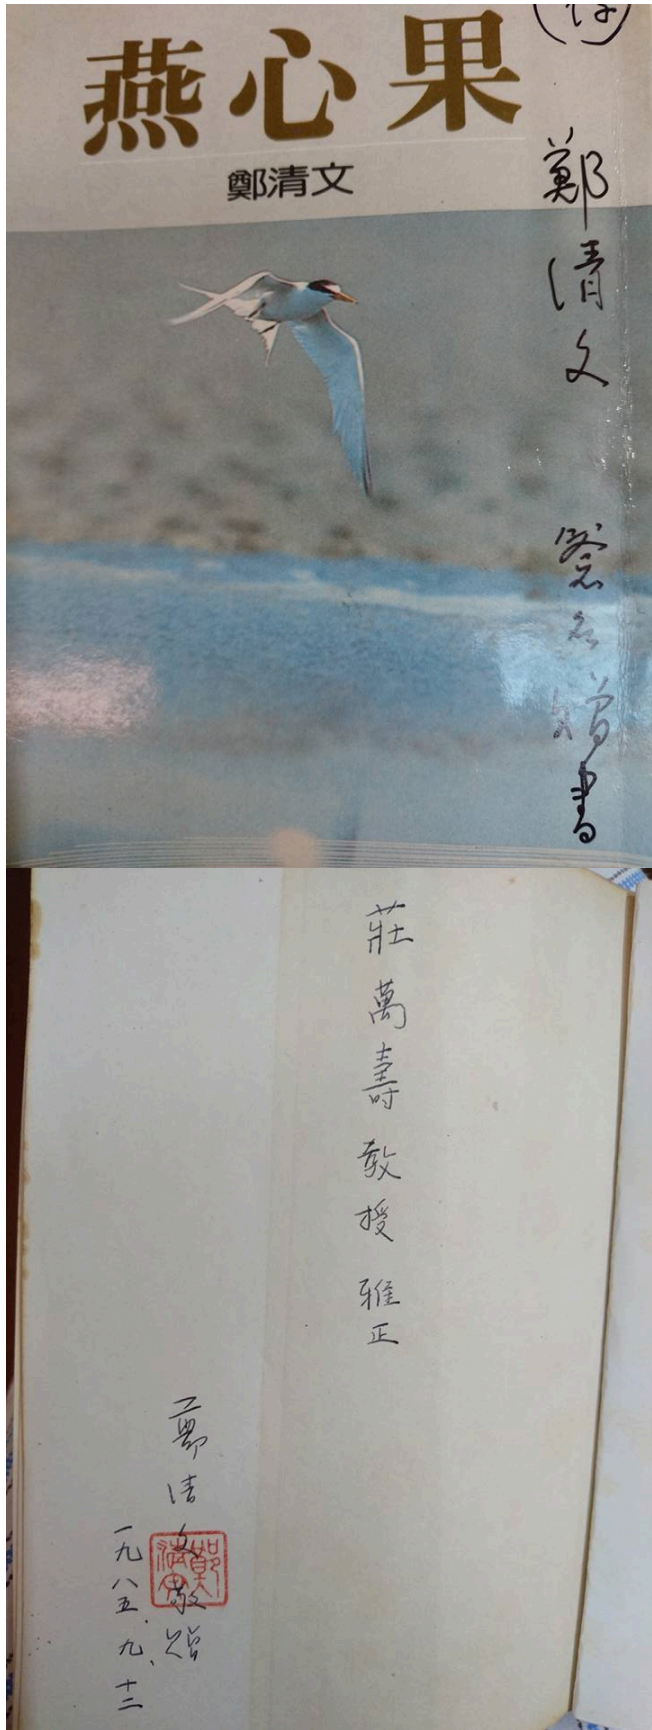 燕心果
鄭清文
鄭清文 簽名贈書
莊萬壽教授 雅正
鄭清文敬贈
一九八五、九、十二